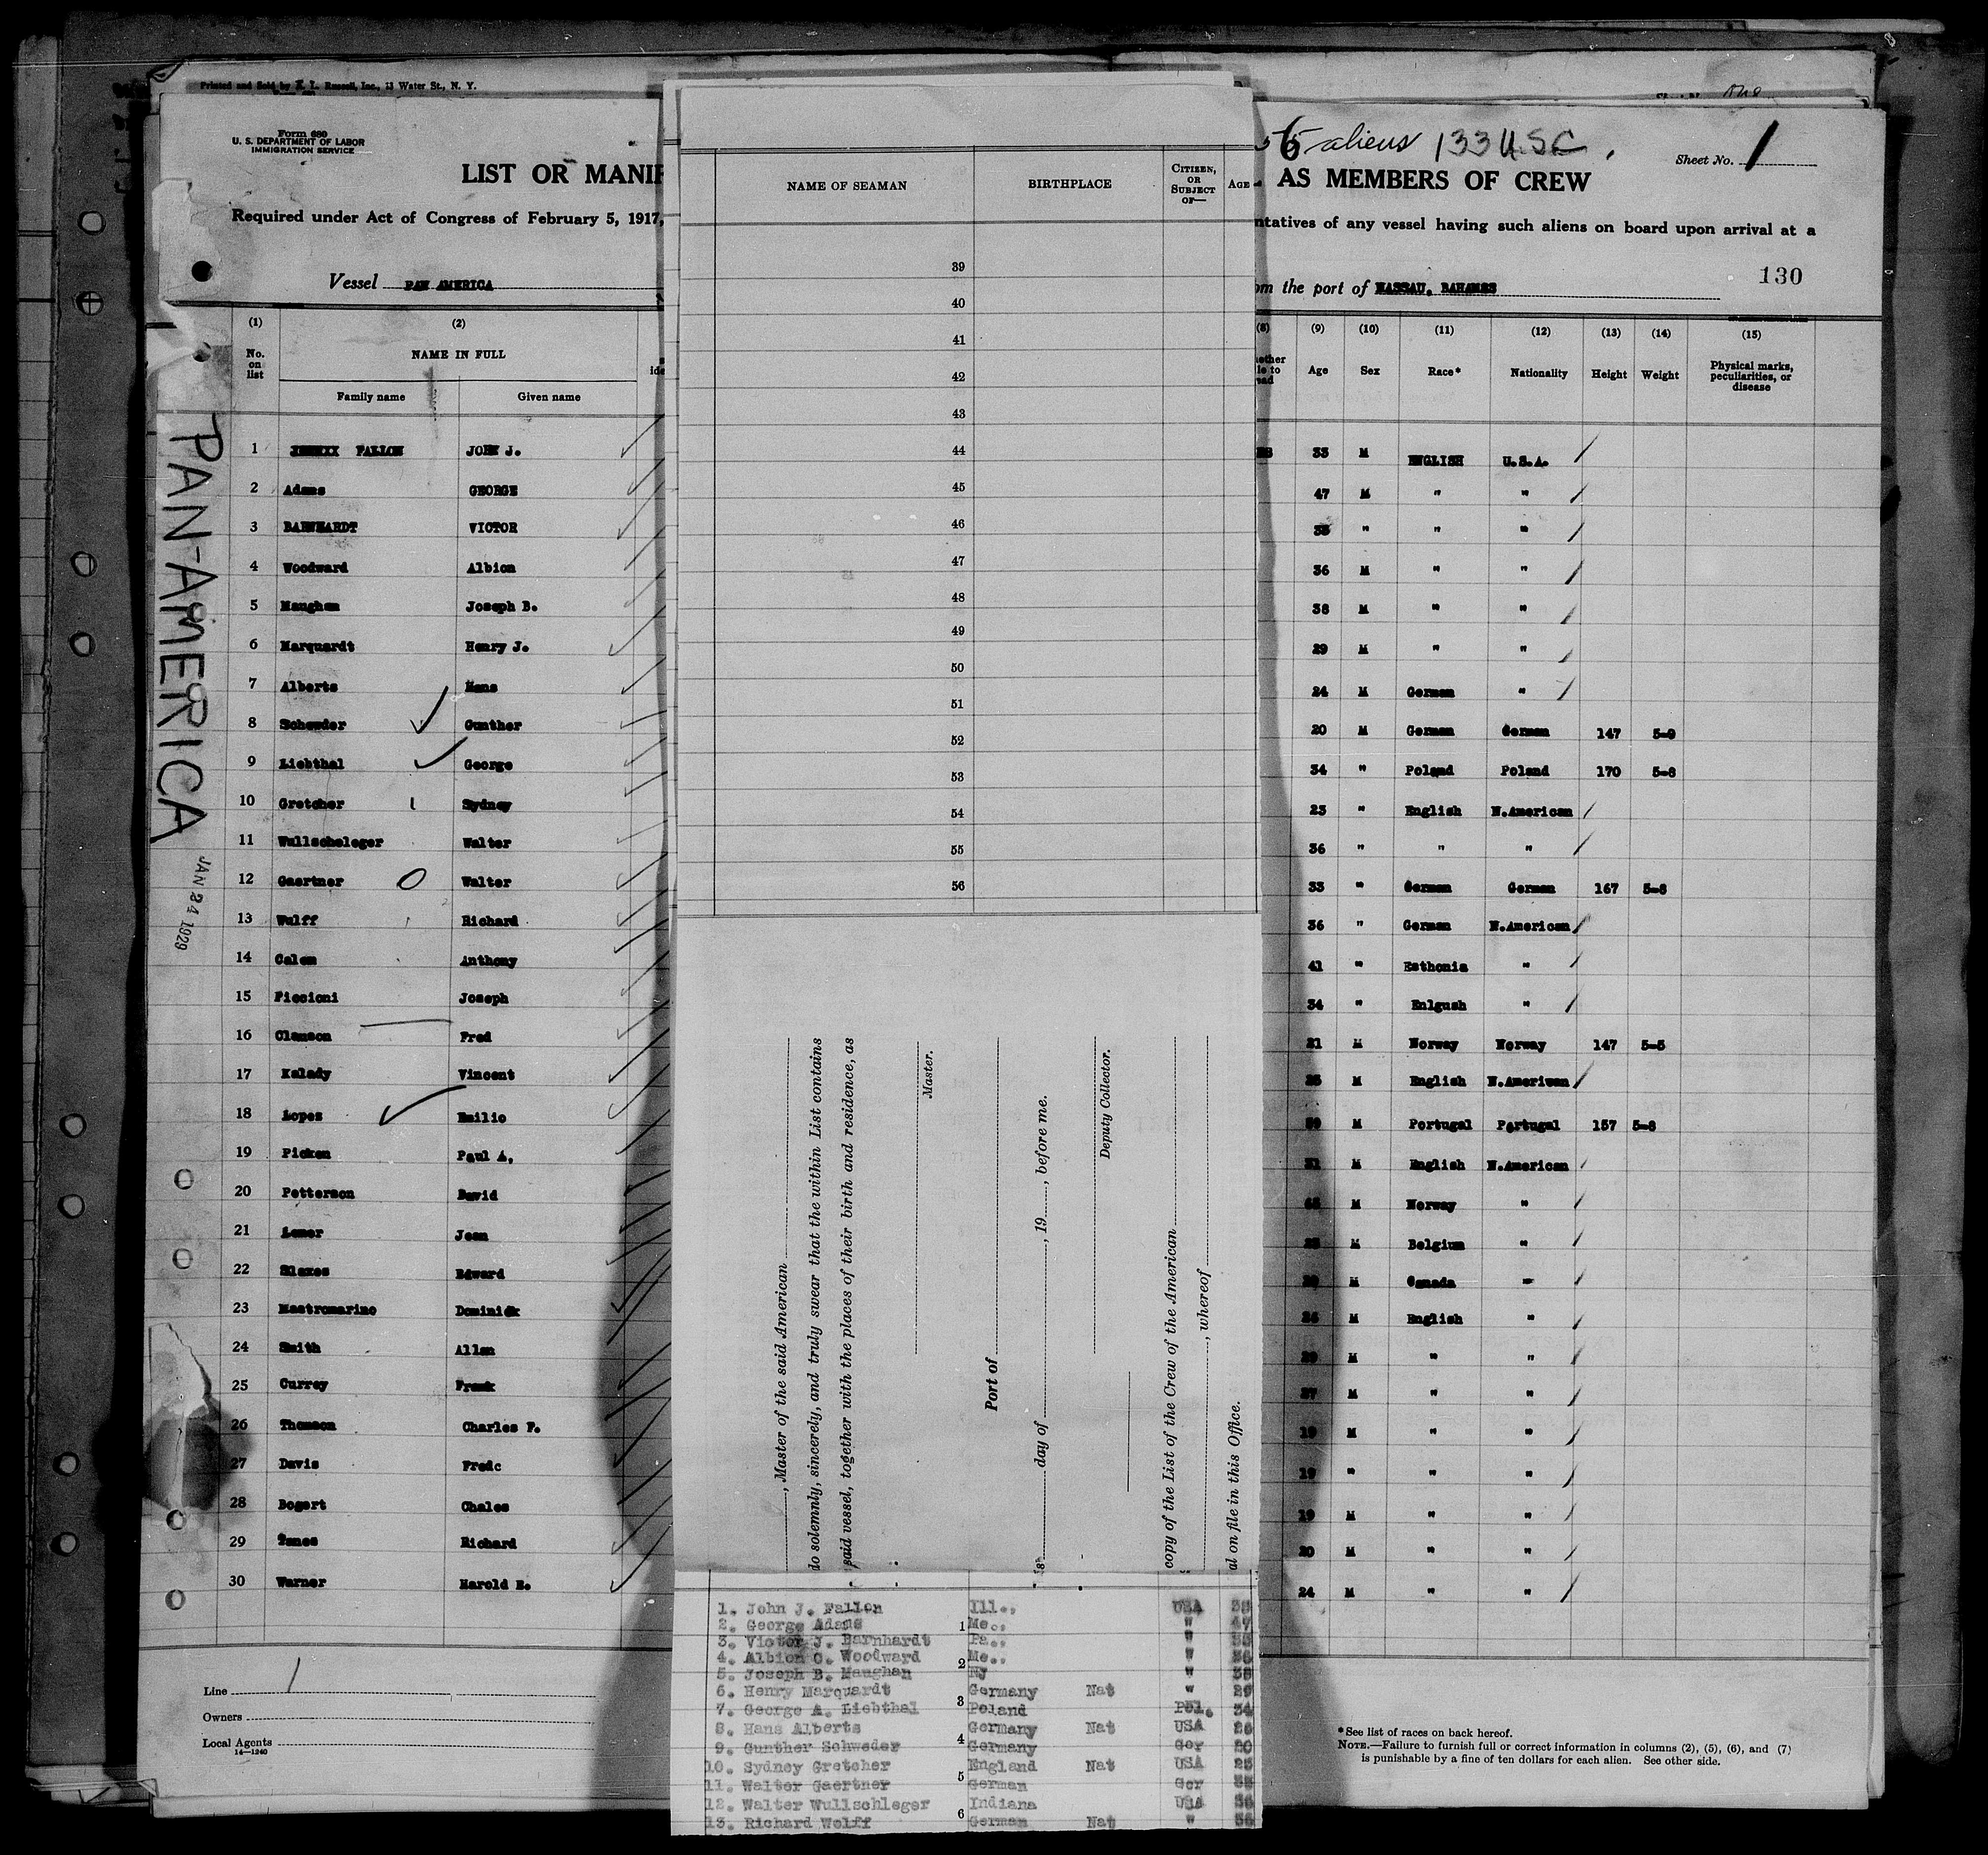 Printed and Sold by E. L. Russell, Inc., 13 Water St., N. Y.
Form 680
U. S. DEPARTMENT OF LABOR
IMMIGRATION SERVICE
LIST OR MANIF
Required under Act of Congress of February 5, 1917,
Vessel PAN AMERICA
6 aliens 133 U.S.C.
Sheet No. 1
AS MEMBERS OF CREW
ntatives of any vessel having such aliens on board upon arrival at a
om the port of NASSAU, BAHAMAS
130
PAN-AMERICA
JAN 24 1929
(1) (2)
No. on list NAME IN FULL
Family name Given name
(8) (9) (10) (11) (12) (13) (14) (15)
Age Sex Race* Nationality Height Weight Physical marks, peculiarities, or disease
1 FALLON JOHN J. 33 M ENGLISH U.S.A.
2 Adams GEORGE 47 M " "
3 BARNHARDT VICTOR " " "
4 Woodward Albion 36 M " "
5 Maughan Joseph B. 38 M " "
6 Marquardt Henry J. 29 M " "
7 Alberts Hans 24 M German "
8 Schewder Gunther 20 M German German 147 5-9
9 Liebthal George 34 " Poland Poland 170 5-8
10 Gretcher Sydney 23 " English N.American
11 Wullscheleger Walter 36 " " "
12 Gaertner Walter 33 " German German 167 5-8
13 Wulff Richard 36 " German N.American
14 Calem Anthony 41 " Esthonia "
15 Piccioni Joseph 34 " Enlgush "
16 Clemson Fred 21 M Norway Norway 147 5-5
17 Kalady Vincent M English N.American
18 Lopes Emilio M Portugal Portugal 157 5-8
19 Picken Paul A, M English N.American
20 Petterson David M Norway "
21 Lemer Jean M Belgium "
22 Edward M Canada "
23 Mastromarino Dominick M English "
24 Smith Allen M " "
25 Currey Frank 37 M " "
26 Thomson Charles F. 19 M " "
27 Davis Fredc 19 " " "
28 Bogert Chales 19 M " "
29 Richard 20 M " "
30 Warner Harold E. 24 M " "
Line 1
Owners
Local Agents
14—1240
NAME OF SEAMAN BIRTHPLACE CITIZEN, OR SUBJECT OF— AGE
39
40
41
42
43
44
45
46
47
48
49
50
51
52
53
54
55
56
, Master of the said American
do solemnly, sincerely, and truly swear that the within List contains
said vessel, together with the places of their birth and residence, as
Master.
Port of
day of , 19 , before me.
Deputy Collector.
copy of the List of the Crew of the American
, whereof
al on file in this Office.
1. John J. Fallon Ill., USA
2. George Adams 1 Me., " 47
3. Victor J. Barnhardt Pa., "
4. Albion C. Woodward 2 Me., " 36
5. Joseph B. Maughan NJ " 38
6. Henry Marquardt Germany Nat " 29
7. George A. Liebthal 3 Poland Pol. 34
8. Hans Alberts Germany Nat USA
9. Gunther Schweder 4 Germany Ger 20
10. Sydney Gretcher England Nat USA 23
11. Walter Gaertner 5 German Ger 33
12. Walter Wullschleger Indiana USA 36
13. Richard Wolff 6 German Nat " 36
*See list of races on back hereof.
NOTE.—Failure to furnish full or correct information in columns (2), (5), (6), and (7)
is punishable by a fine of ten dollars for each alien. See other side.